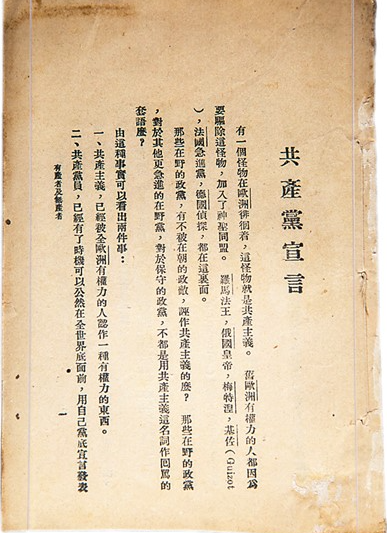 共產黨宣言
有一個怪物在歐洲徘徊着，這怪物就是共產主義。舊歐洲有權力的人都因爲
要驅除這怪物，加入了神聖同盟。羅馬法王，俄國皇帝，梅特涅，基佐（Guizot
），法國急進黨，德國偵探，都在這裏面。
那些在野的政黨，有不被在朝的政敵，誣作共產主義的麽？那些在野的政黨
，對於其他更急進的在野黨，對於保守的政黨，不都是用共產主義這名詞作回罵的
套語麽？
由這種事實可以看出兩件事：
一、共產主義，已經被全歐洲有權力的人認作一種有權力的東西。
二、共產黨員，已經有了時機可以公然在全世界底面前，用自己黨底宣言發表
有產者及無產者
一